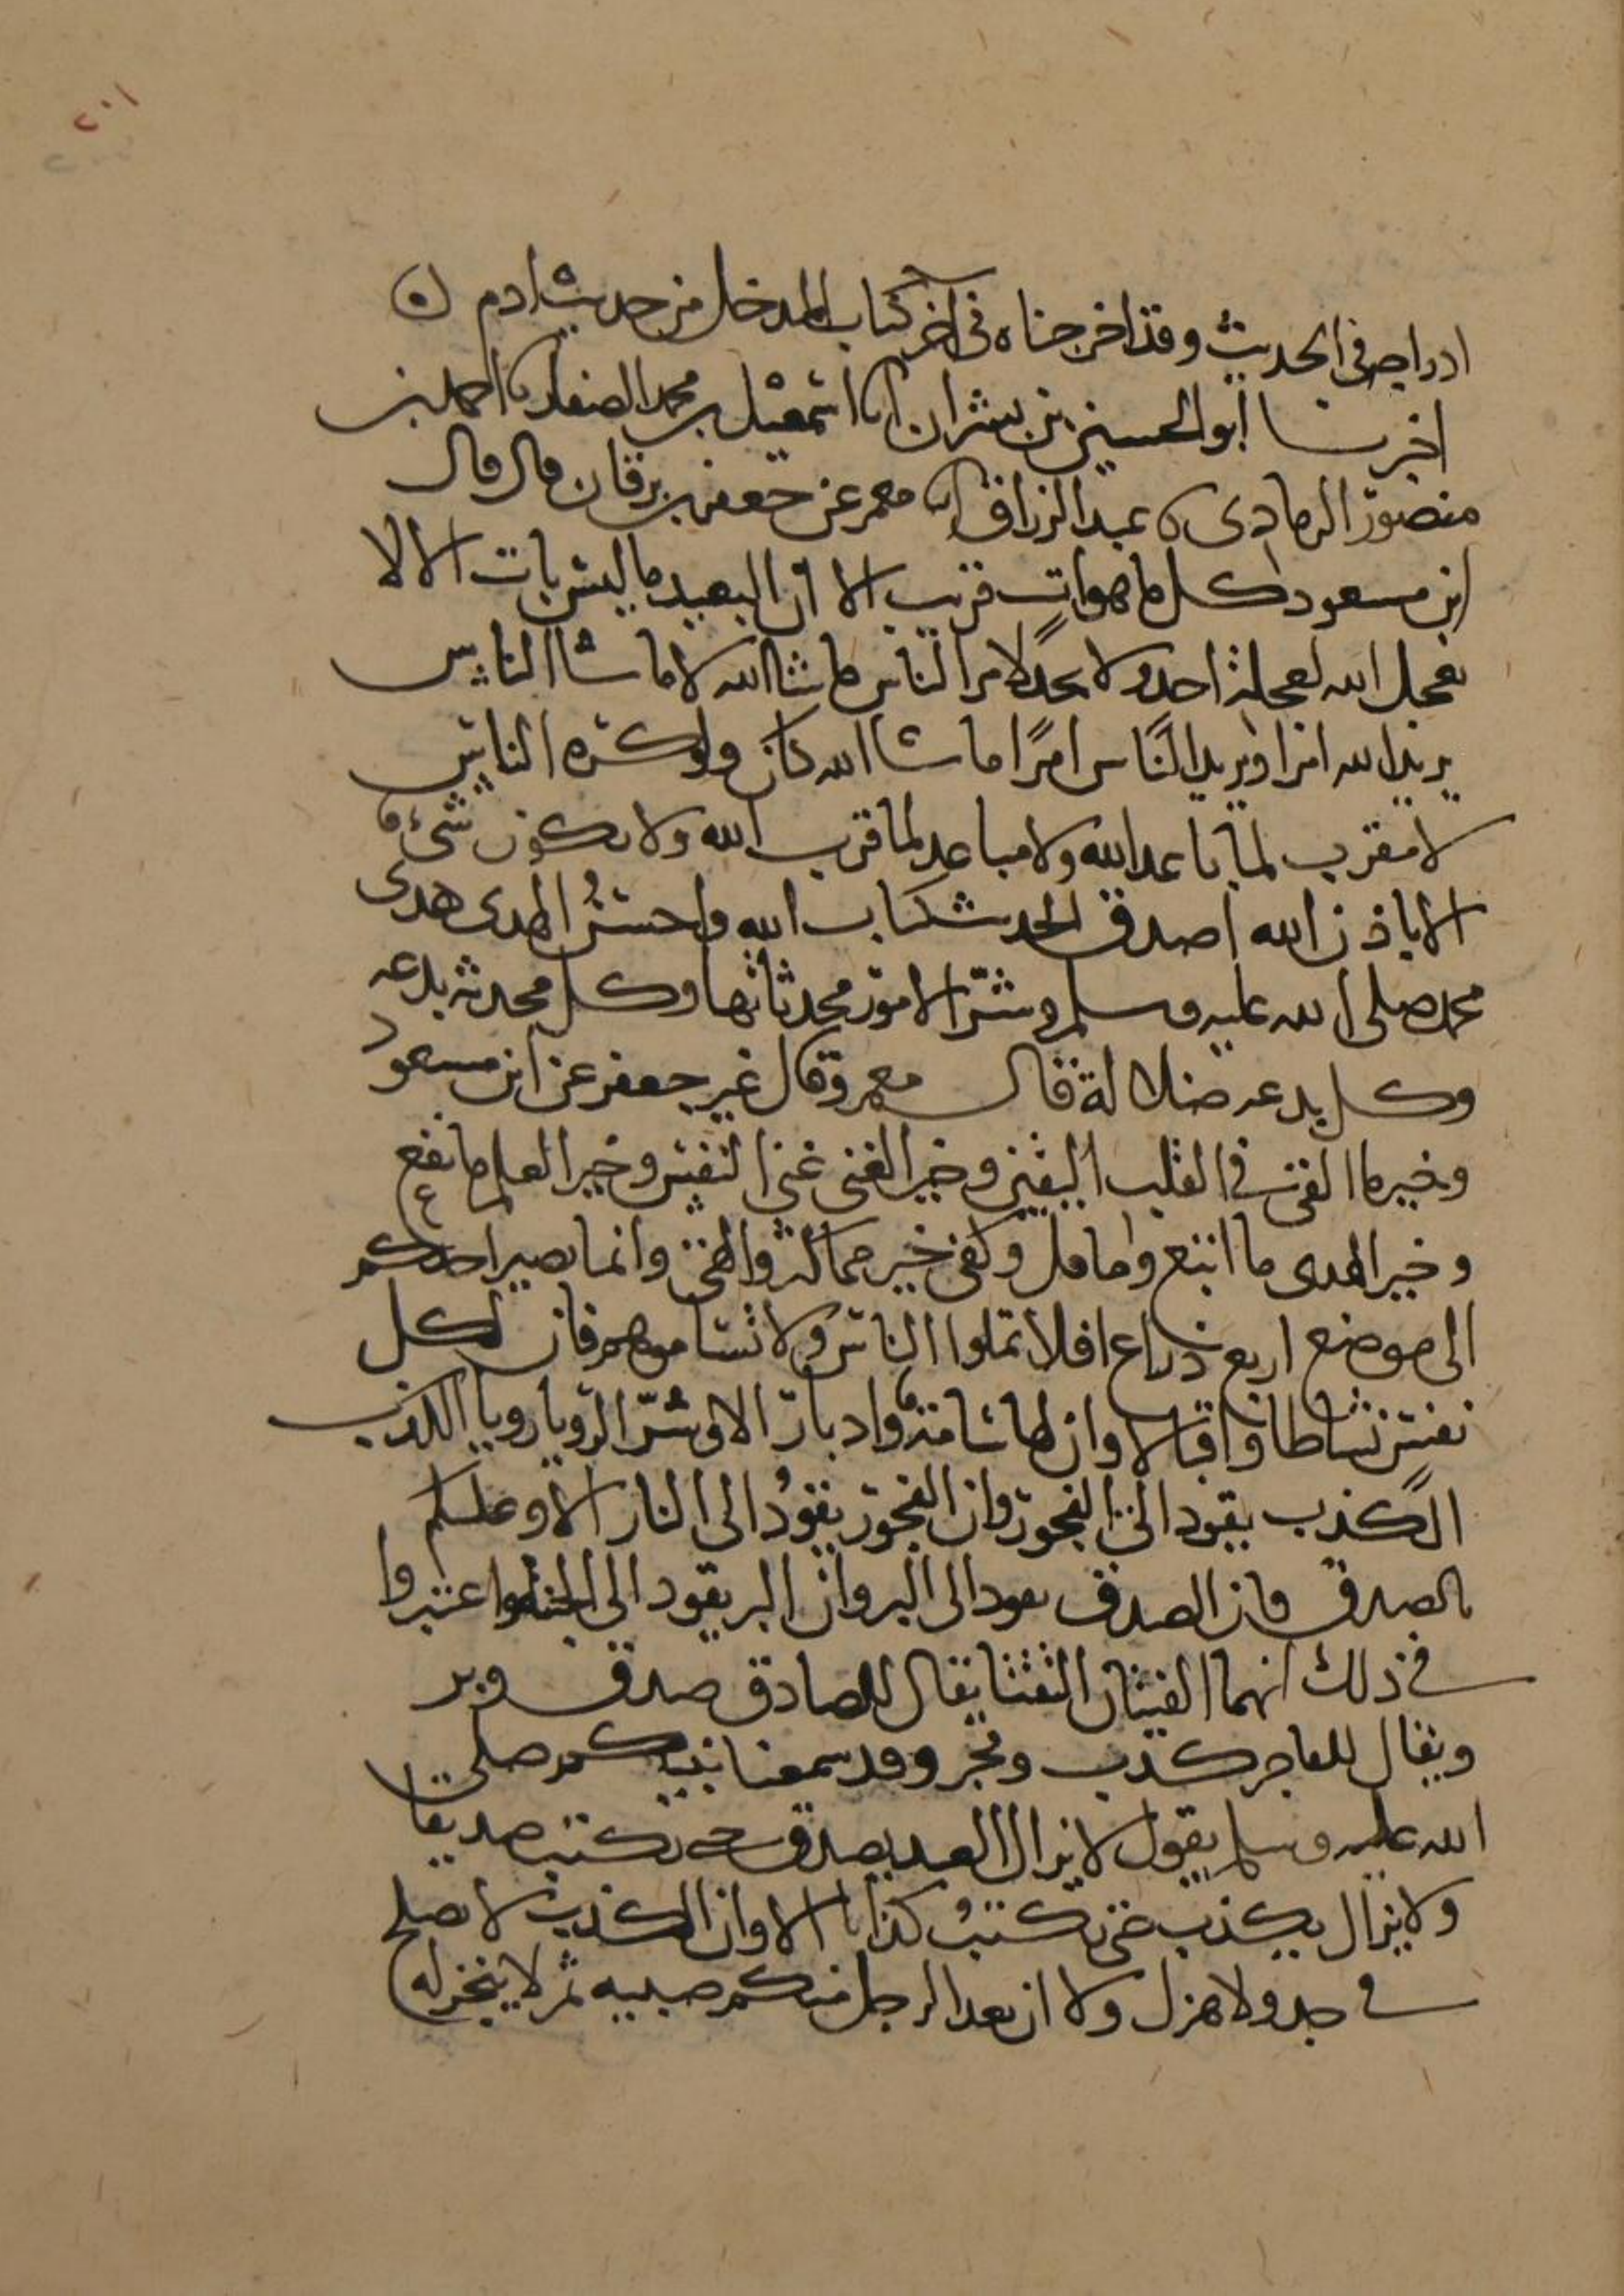 ٢٠١
ادراجه في الحديث وقد اخرجناه في اخر كتاب المدخل من حديث ادم
اخبرنا ابو الحسين بن بشران انا اسمعيل بن محمد الصفار نا احمد بن
منصور الرمادي نا عبد الرزاق انا معمر عن جعفر بن برقان قال قال
ابن مسعود كل ما هو ات قريب الا ان البعيد ما ليس بات الا لا
يعجل الله لعجلة احد ولا يجد لامر الناس ما شا الله لا ما شا الناس
يريد الله امرا ويريد الناس امرًا ما شا الله كان ولو كره الناس
لا مقرب لما باعد الله ولا مباعد لما قرب الله ولا يكون شئ
الا باذن الله اصدق الحديث كتاب الله واحسنُ الهدى هدى
محمد صلى الله عليه وسلم وشرّ الامور محدثاتها وكل محدثة بدعه
وكل بدعه ضلالة قال معمر وقال غير جعفر عن ابن مسعود
وخير ما القى في القلب اليقين وخير الغنى غنى النفس وخير العلم ما نفع
وخير الهدى ما اتبع وما قل وكفى خير مما كثر والهى وانما يصير احدكم
الى موضع اربع ذراع افلا تملوا الناس ولا تساموهم فان لكل
نفس نشاطا واقبالا وان لها سامة وادبارا الا وشرّ الرويا رويا الكذب
الكذب يقود الى الفجور وان الفجور يقودُ الى النار الا وعليكم
بالصدق فان الصدق يقود الى البر وان البر يقود الى الجنة واعتبروا
في ذلك انهما الفيتان التقتا يقال للصادق صدق وبر
ويقال للفاجر كذب وفجر وقد سمعنا نبيكم صلى
الله عليه وسلم يقول لا يزال العبد يصدق حتى يكتب صديقا
ولا يزال يكذب حتى يكتبُ كذابا الا وان الكذب لا يصلح
في جد ولا هزل ولا ان يعد الرجل منكم صبيه ثم لا ينجز له